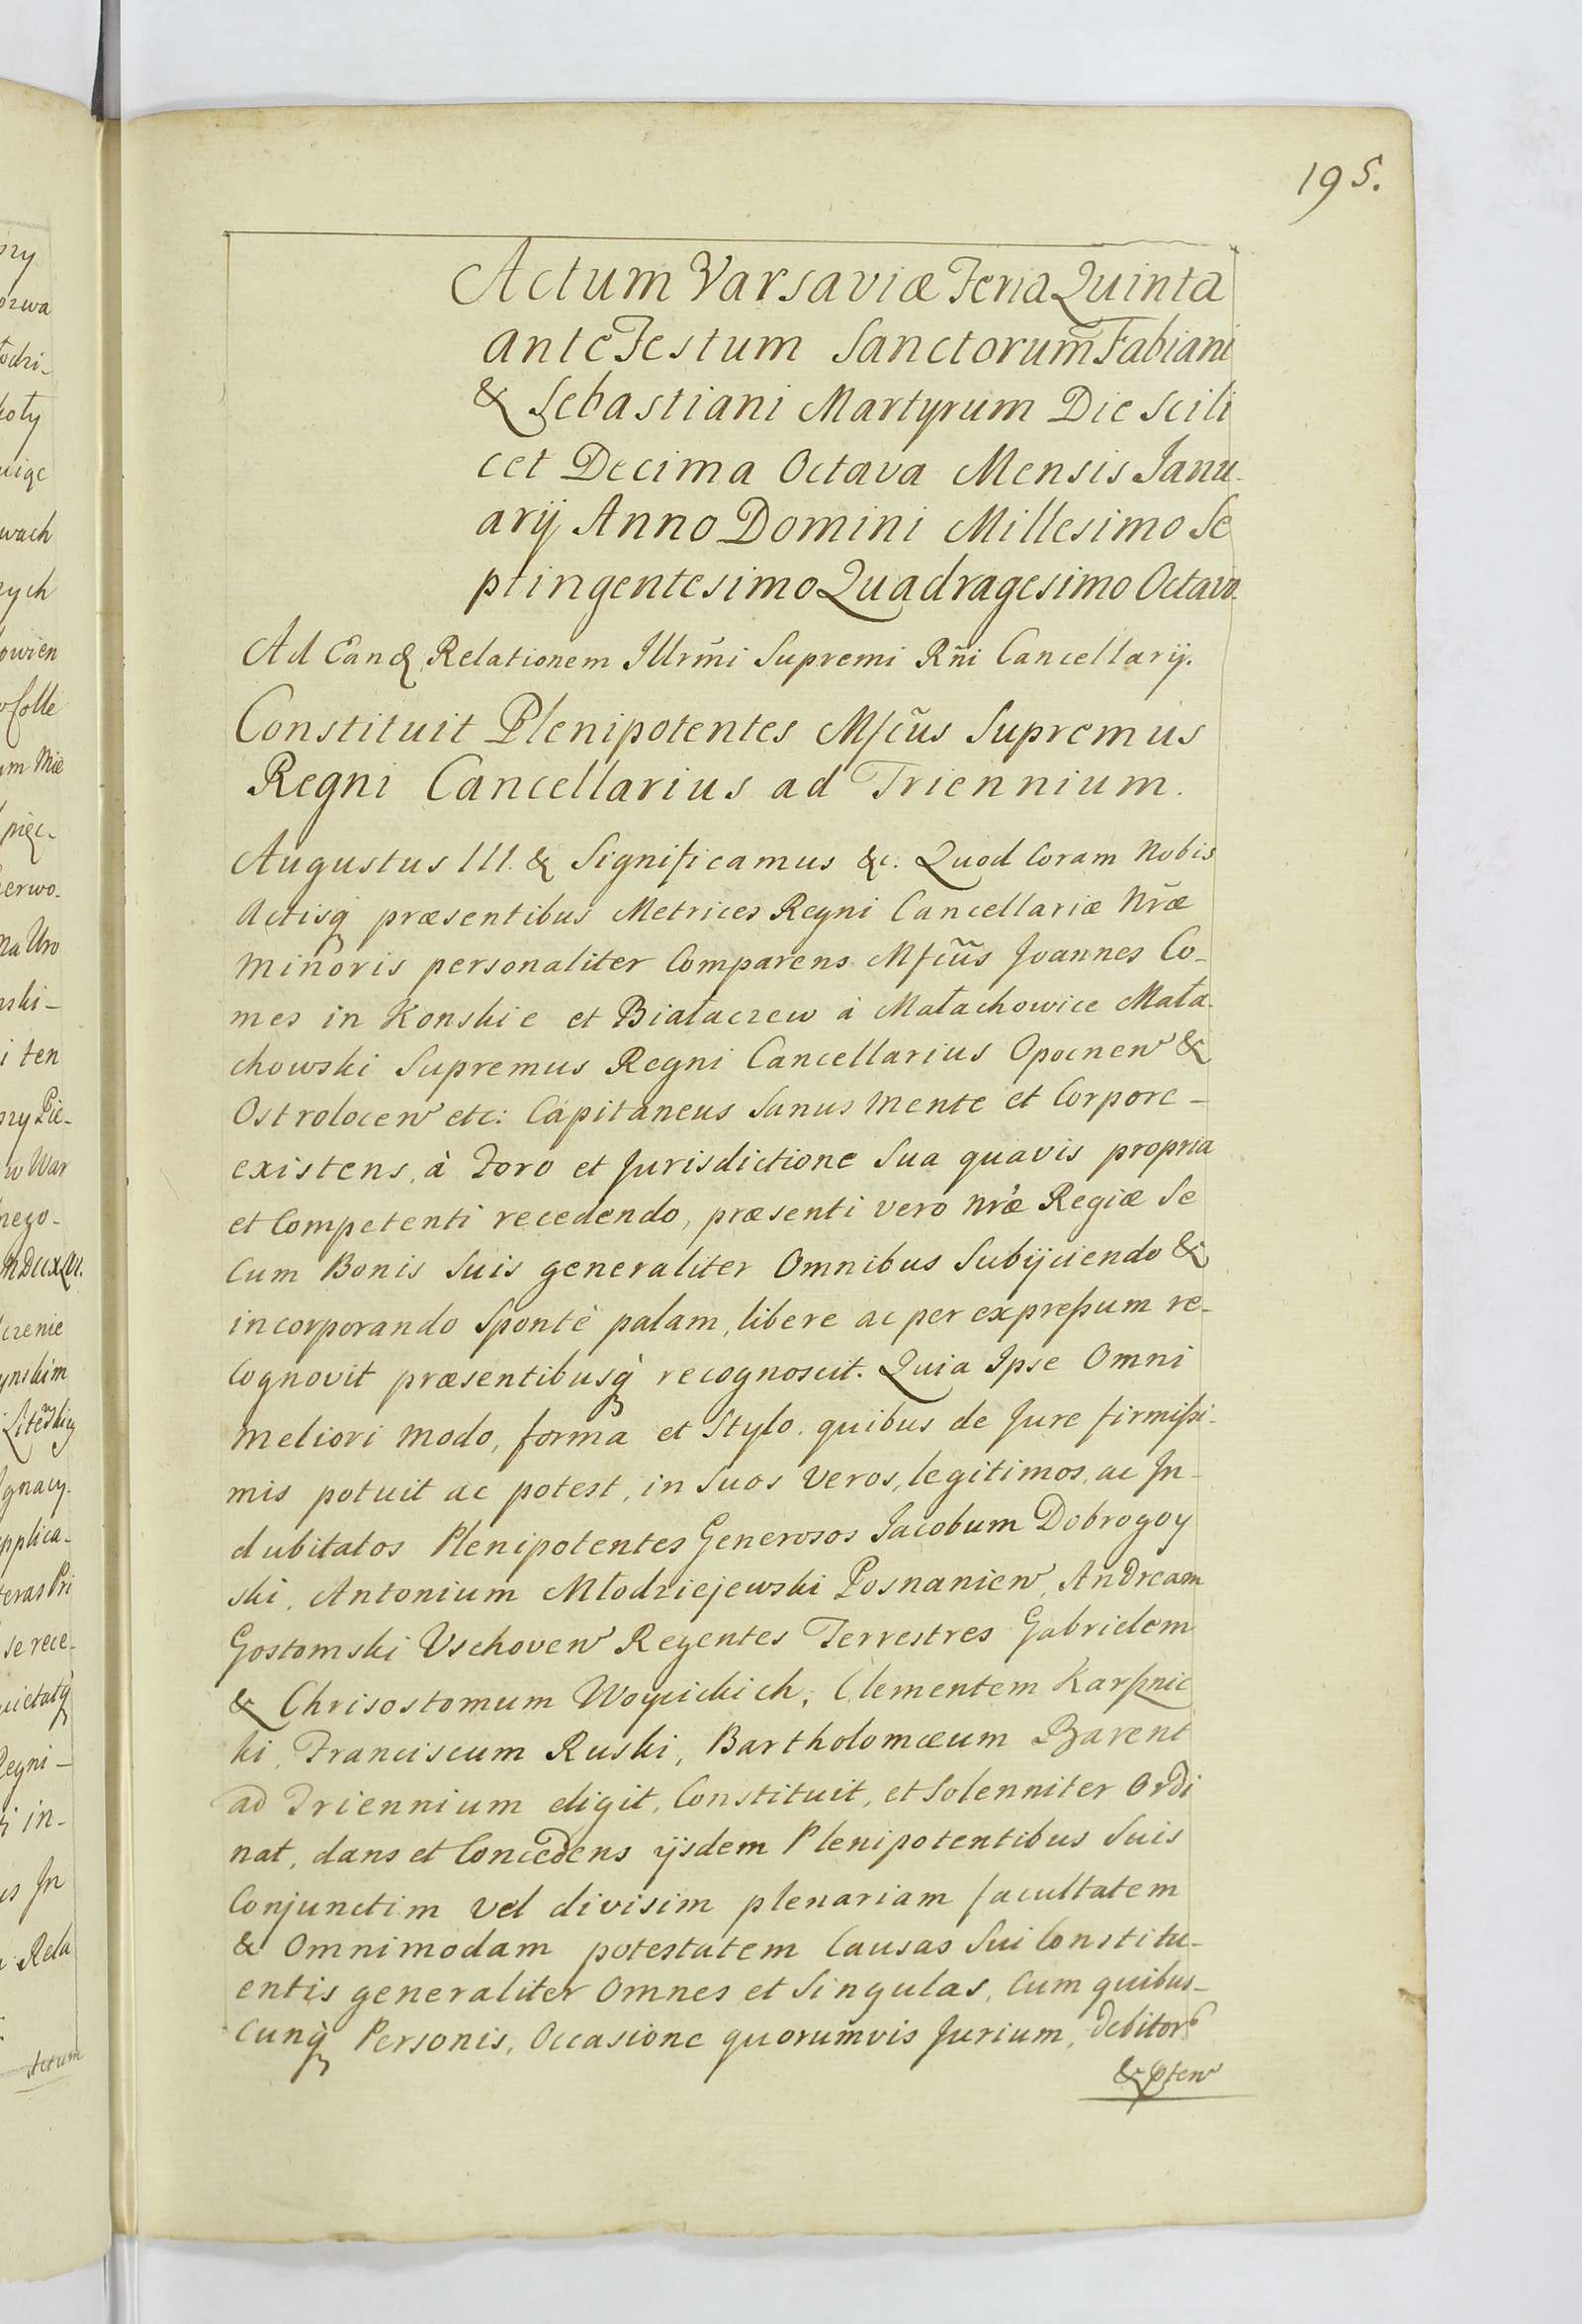 195.
Actum Varsaviæ Feria Quinta
ante Festum Sanctorum Fabiani
& Sebastiani Martyrum Die Scili
cet Decima Octava Mensis Janu-
arij Anno Domini Millesimo Se
ptingentesimo Quadragesimo Octavo.
Ad Eandē Relationem Illrm̃i Supremi Rñi Cancellarij.
Constituit Plenipotentes Mfcũs Supremus
Regni Cancellarius ad Triennium.
Augustus III. & Significamus &c. Quod Coram Nobis
Actisq̀ præsentibus Metrices Regni Cancellariæ Nrãe
Minoris personaliter Comparens Mfcũs Joannes Co-
mes in Konskie et Białaczew à Małachowice Mała-
chowski Supremus Regni Cancellarius Opocnen &
Ostrolocen etc: Capitaneus Sanus Mente et Corpore -
existens, à Foro et Jurisdictione Sua quavis propria
et Competenti recedendo, præsenti vero Nrãe Regiæ Se
Cum Bonis Suis generaliter Omnibus Subijciendo &
incorporando Sponte palam, libere ac per expreßum re-
Cognovit præsentibusq̀ recognoscit. Quia Ipse Omni
Meliori Modo, forma et Stylo, quibus de Jure firmißi-
mis potuit ac potest, in Suos Veros, legitimos, ac In-
dubitatos Plenipotentes Generosos Jacobum Dobrogoy
ski, Antonium Młodziejewski Posnanien, Andream
Gostomski Vschoven Regentes Terrestres Gabrielem
& Chrisostomum Woyicickich, Clementem Karßnic
ki, Franciscum Ruski, Bartholomæum Barent
ad Triennium eligit, Constituit, et Solenniter Ordi
nat, dans et Concedens ijsdem Plenipotentibus Suis
Conjunctim vel divisim plenariam facultatem
& Omnimodam potestatem Causas Sui Constitu-
entis generaliter Omnes et Singulas, Cum quibus-
Cunq̀ Personis, Occasione quorumvis Jurium, debitor